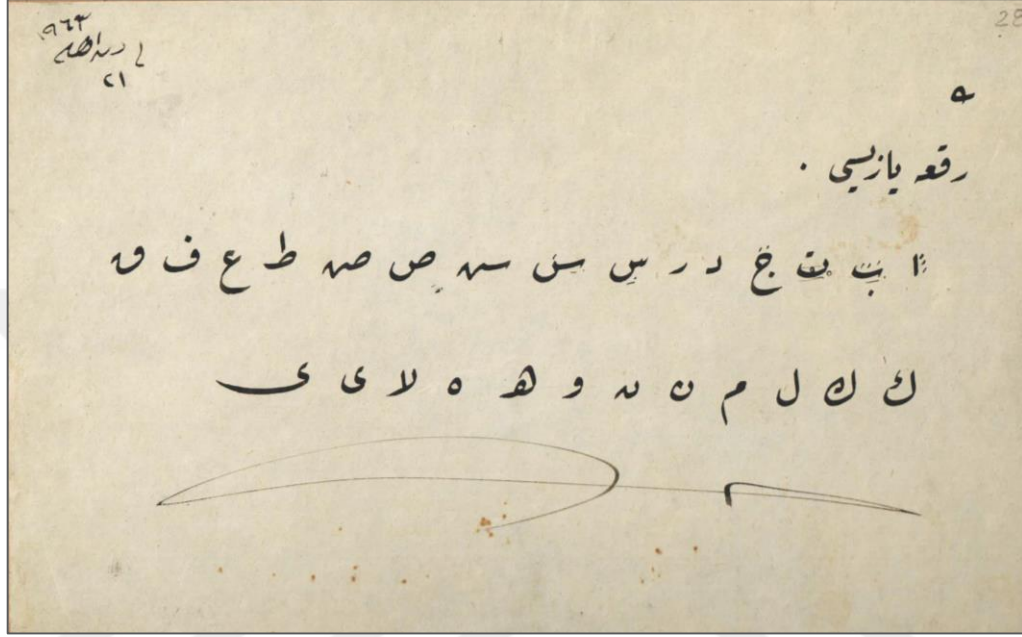 ٩٦٣
٢١
28
رقعه يازيسى .
ا ب ت ج د ر س س س ص ص ط ع ف ق
ك ك ل م ن ن و ه ه لا ى ى